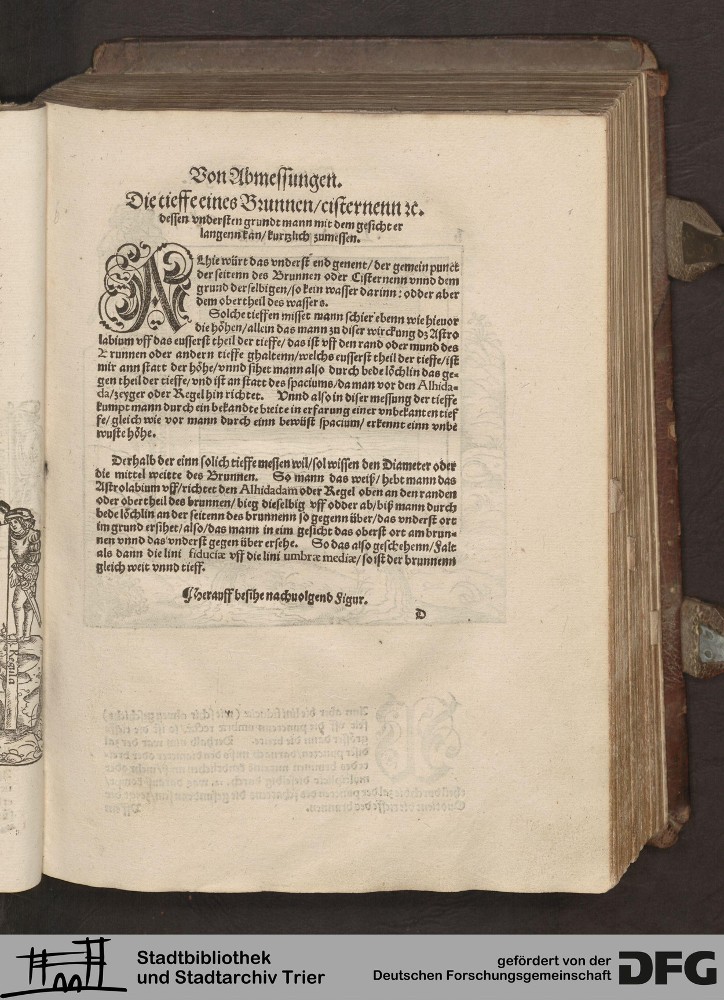 Von Abmessungen.
Die tieffe eines Brunnen/cisternenn ꝛc.
dessen vndersten grundt mann mit dem gesicht er
langenn kan/kurtzlich zumessen.
Alhie würt das vnderst end genent/der gemein punct
der seitenn des Brunnen oder Cisternenn vnnd dem
grund der selbigen/so kein wasser darinn: odder aber
dem obertheil des wassers.
Solche tieffen misset mann schier ebenn wie hieuor
die höhen/allein das mann zu diser wirckung dz Astro
labium vff das eusserst theil der tieffe/das ist vff den rand oder mund des
Brunnen oder andern tieffe ghaltenn/welchs eusserst theil der tieffe/ist
mir ann statt der höhe/vnnd sihet mann also durch bede löchlin das ge-
gen theil der tieffe/vnd ist an statt des spaciums/da man vor den Alhida-
da/zeyger oder Regel hin richtet. Vnnd also in diser messung der tieffe
kumpt mann durch ein bekandte breite in erfarung einer vnbekanten tief
fe/gleich wie vor mann durch einn bewüst spacium/erkennt einn vnbe
wuste höhe.
Derhalb der einn solich tieffe messen wil/sol wissen den Diameter oder
die mittel weitte des Brunnen. So mann das weiß/hebt mann das
Astrolabium vff/richtet den Alhidadam oder Regel oben an den randen
oder obertheil des brunnen/bieg dieselbig vff odder ab/biß mann durch
bede löchlin an der seitenn des brunnenn so gegenn über/das vnderst ort
im grund ersihet/also/das mann in eim gesicht das oberst ort am brun-
nen vnnd das vnderst gegen über ersehe. So das also geschehenn/Falt
als dann die lini fiduciæ vff die lini umbræ mediæ/so ist der brunnenn
gleich weit vnnd tieff.
¶Herauff besihe nachuolgend Figur.
D
Regula
Stadtbibliothek
und Stadtarchiv Trier
gefördert von der
Deutschen Forschungsgemeinschaft
DFG